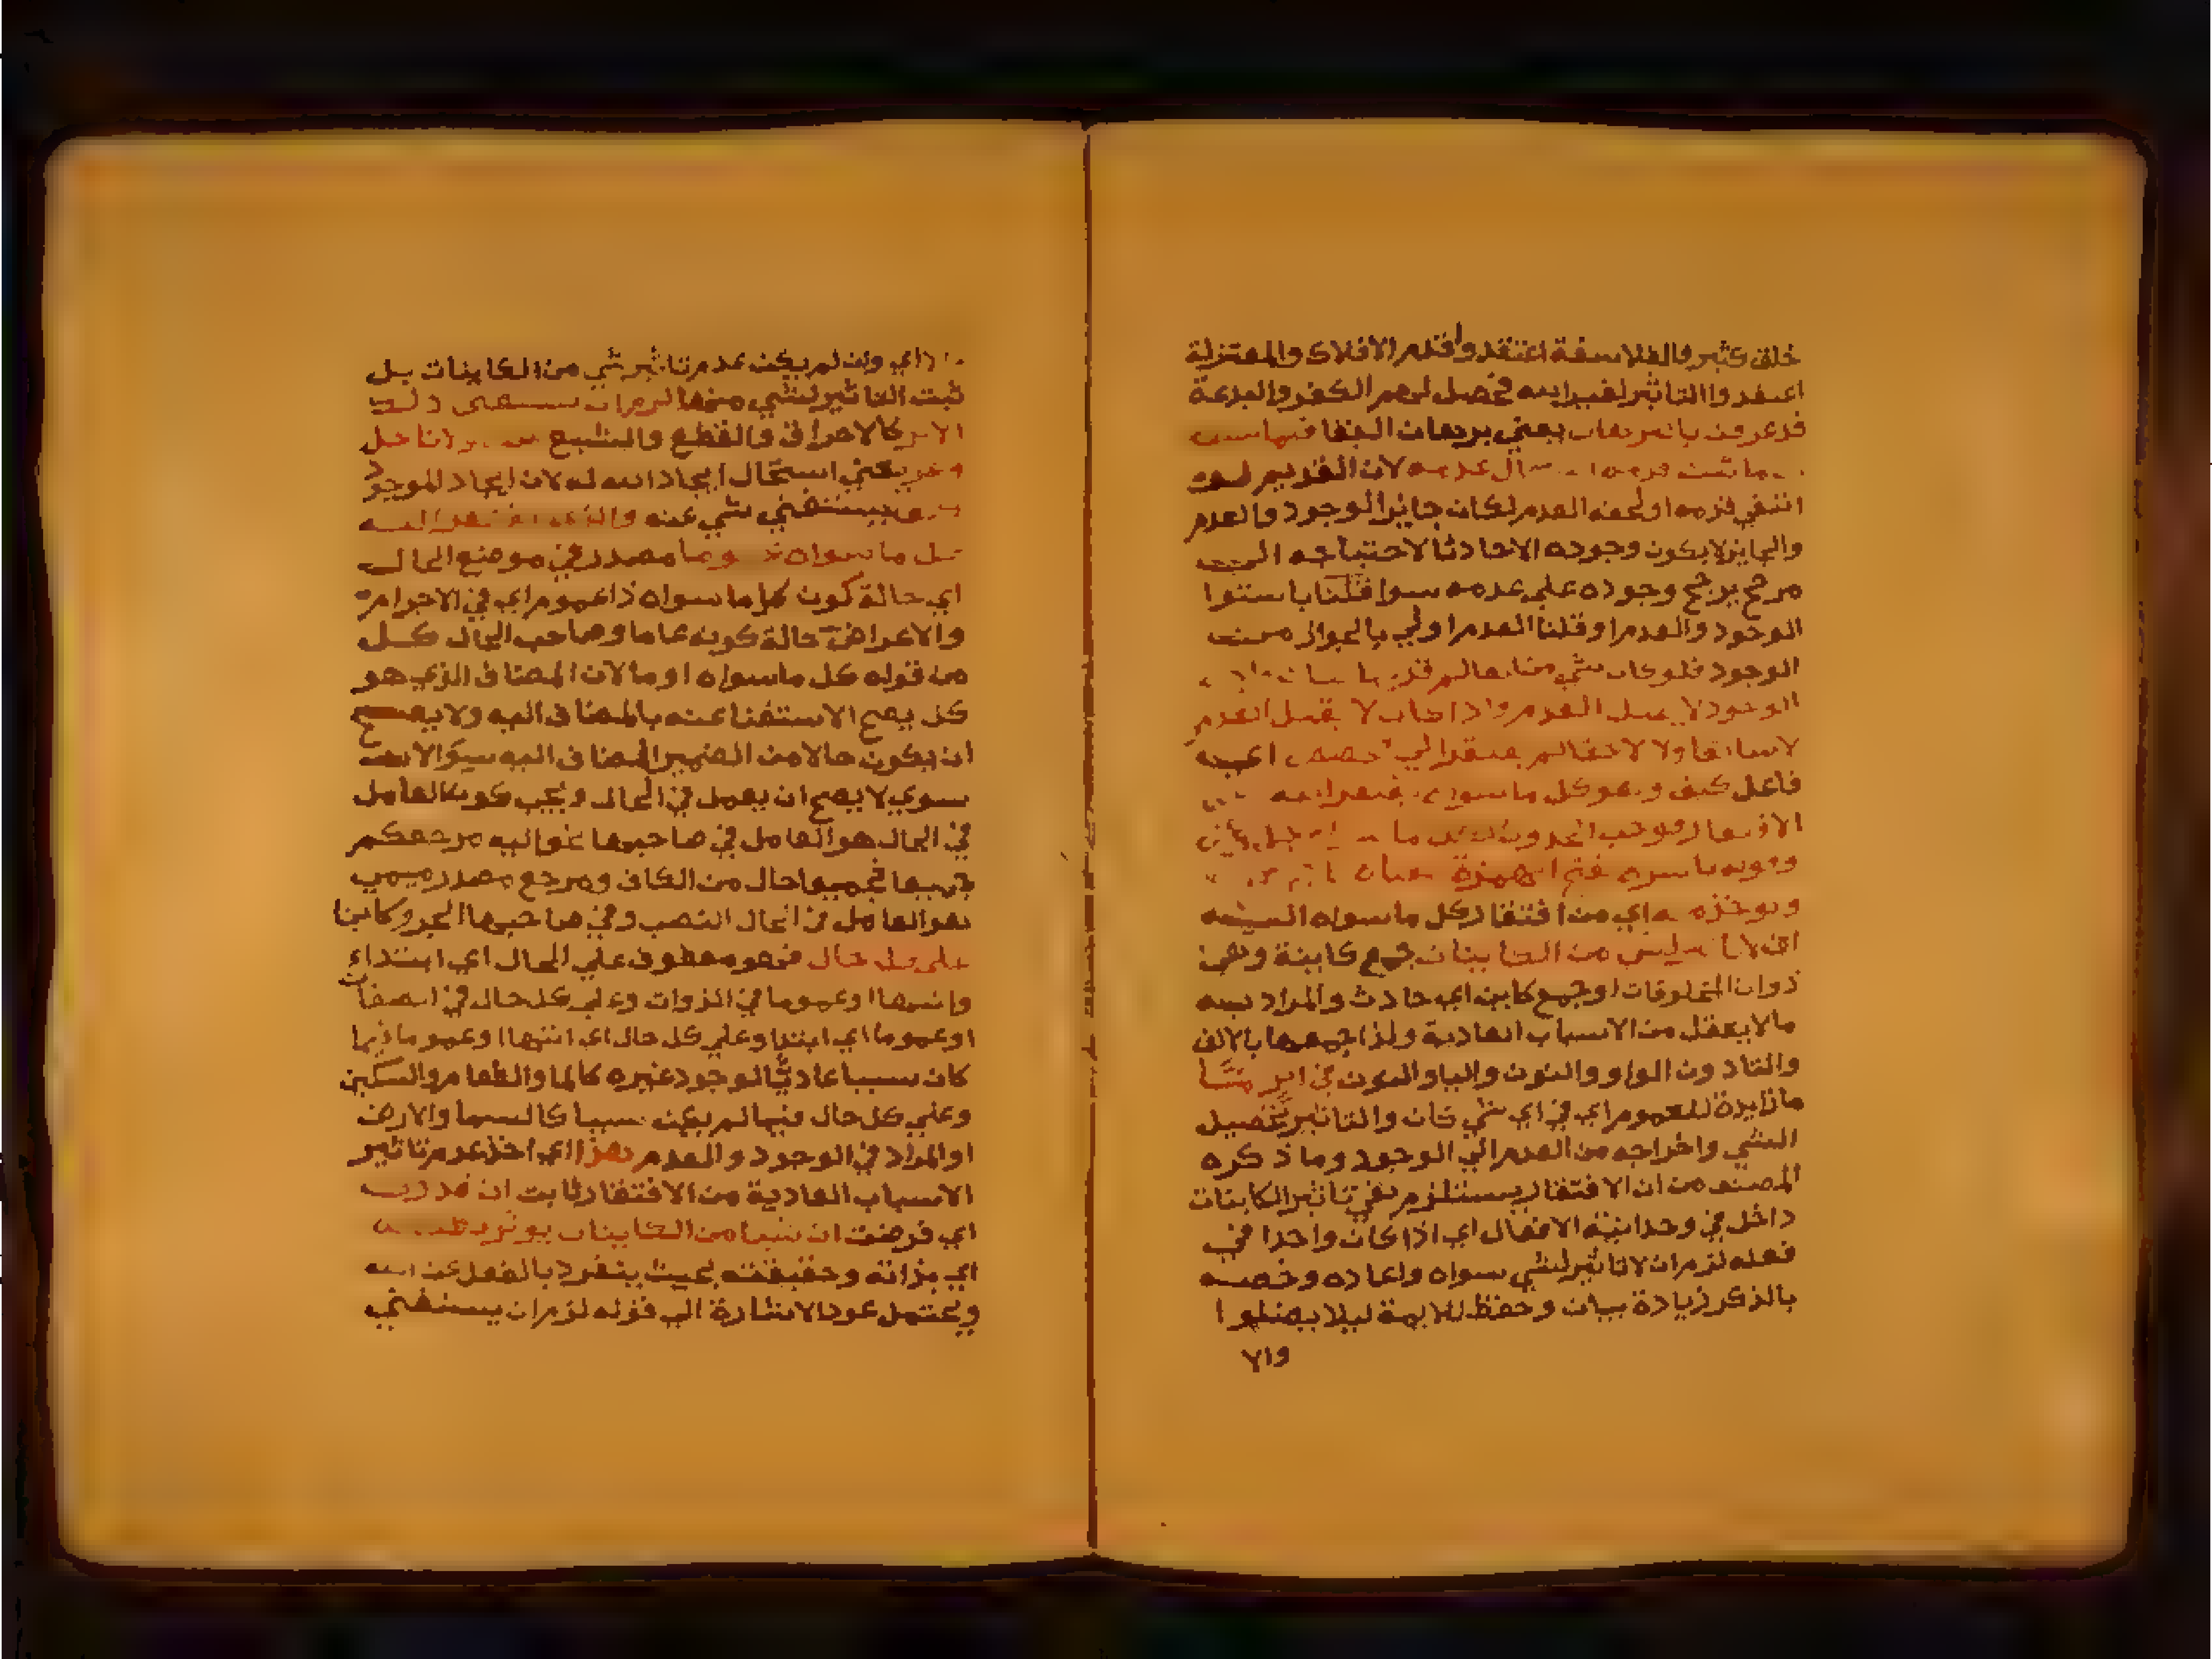 خلق كثير فالفلاسفة اعتقدوا قدم الافلاك والمعتزلة
اعتقدوا التاثير لغير الله فحصل لهم الكفر والبدعة
قد عرفت بالبرهان يعني برهان البقا فيما سبق
ما ثبت قدمه استحال عدمه لان القديم لو
انتفي قدمه او لحقه العدم لكان جايز الوجود والعدم
والجايز لا يكون وجوده الا حادثا لاحتياجه الي
مرجح يرجح وجوده علي عدمه سوا قلنا باستوا
الوجود والعدم او قلنا العدم اولي بالجواز من
الوجود فلو كان شي من العالم قديما
الوجود لا يقبل العدم واذا كان لا يقبل العدم
لا سابقا ولا لاحقا لم يفتقر الي مخصص اي
فاعل كيف وهو كل ما سواه مفتقر اليه
الافتقار
فتح الهمزة
ويوخذ منه اي من افتقار كل ما سواه اليه
ان لا تاثير لشي من الكاينات جمع كاينة وهي
ذوات المخلوقات او جمع كاين اي حادث والمراد به
ما لا يعقل من الاسباب العادية ولذا جمعها بالالف
والتا دون الواو والنون واليا والنون في اثر مّا
ما زايدة للعموم اي في اي شي كان والتاثير تحصيل
الشي واخراجه من العدم الي الوجود وما ذكره
المصنف من ان الافتقار يستلزم نفي تاثير الكاينات
داخل في وحدانية الافعال اي اذا كان واحدا في
فعله لزم ان لا تاثير لشي سواه واعاده وخصه
بالذكر زيادة بيان وحفظ للايمة ليلا يضلوا
والا
اي وان لم يكن عدم تاثير شي من الكاينات بل
ثبت التاثير لشي منها لزم ان يستغني ذلك
الاثر كالاحراق والقطع والشبع عن مولانا جل
وعز يعني استحال ايجاد الله له لان ايجاد الموجود
يستغني شي عنه والذي يفتقر اليه
كل ما سواه عموما مصدر في موضع الحال
اي حالة كون كل ما سواه ذا عموم اي في الاجرام
والاعراض حالة كونه عاما وصاحب الحال كل
من قوله كل ما سواه او ما لان المضاف الذي هو
كل يصح الاستغنا عنه بالمضاف اليه ولا يصح
ان يكون حالا من الضمير المضاف اليه سوا لان
سوي لا يصح ان يعمل في الحال ويجب كون العامل
في الحال هو العامل في صاحبها نحو اليه مرجعكم
جميعا فجميعا حال من الكاف ومرجع مصدر ميمي
هو العامل في الحال النصب وفي صاحبها الجر وكاينا
علي كل حال فهو معطوف علي الحال اي ابتداء
وانتها او عموما في الذوات وعلي كل حال في الصفات
او عموما اي ابتدا وعلي كل حال اي انتها او عموما فيما
كان سببا عاديّا لوجود غيره كالما والطعام والسكين
وعلي كل حال فيما لم يكن سببا كالسما والارض
او المراد في الوجود والعدم هذا اي اخذ عدم تاثير
الاسباب العادية من الافتقار ثابت ان قدرت
اي فرضت ان شيا من الكاينات يوثر بطبعه
اي بذاته وحقيقته بحيث ينفرد بالفعل عن الله
ويحتمل عود الاشارة الي قوله لزم ان يستغني